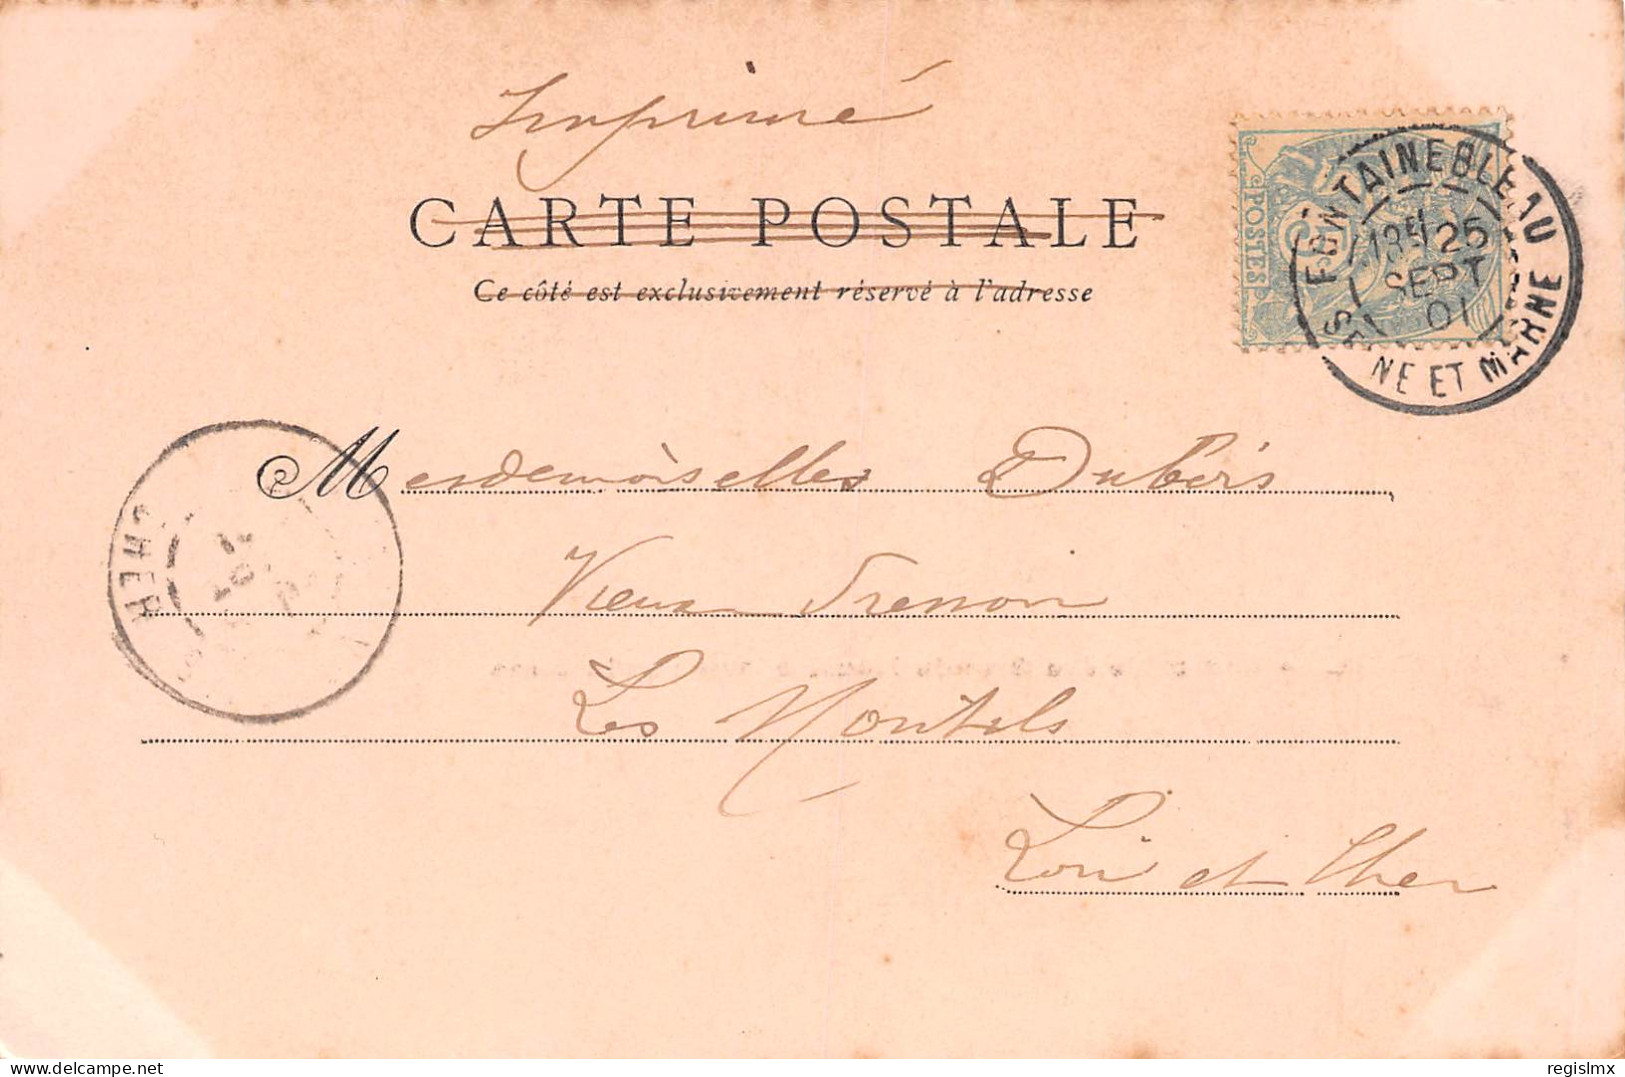 Imprimé
CARTE POSTALE
Ce côté est exclusivement réservé à l'adresse
POSTES
FONTAINEBLEAU
25
SEPT
01
SEINE ET MARNE
Mesdemoiselles Dubois
Vieux
Les Montils
Loir et Cher
CHER
© regislmx